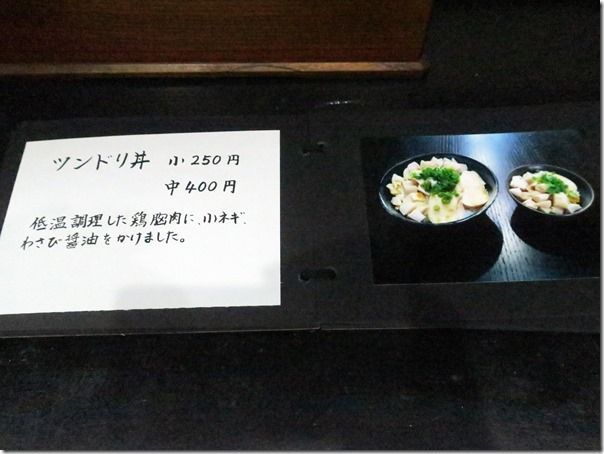 ツンドリ丼 小250円
中400円
低温調理した鶏胸肉に、小ネギ、
わさび醤油をかけました。